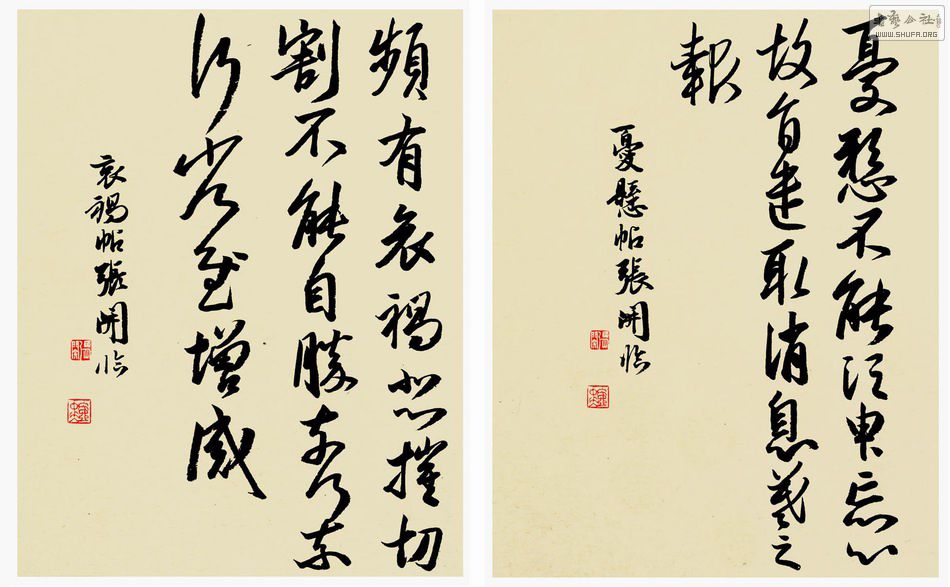 憂懸不能須臾忘心
故旨遣取消息羲之
報
憂懸帖張開臨
頻有哀禍悲摧切
割不能自勝奈何奈
何省慰增感
哀禍帖張開臨
书艺公社
WWW.SHUFA.ORG